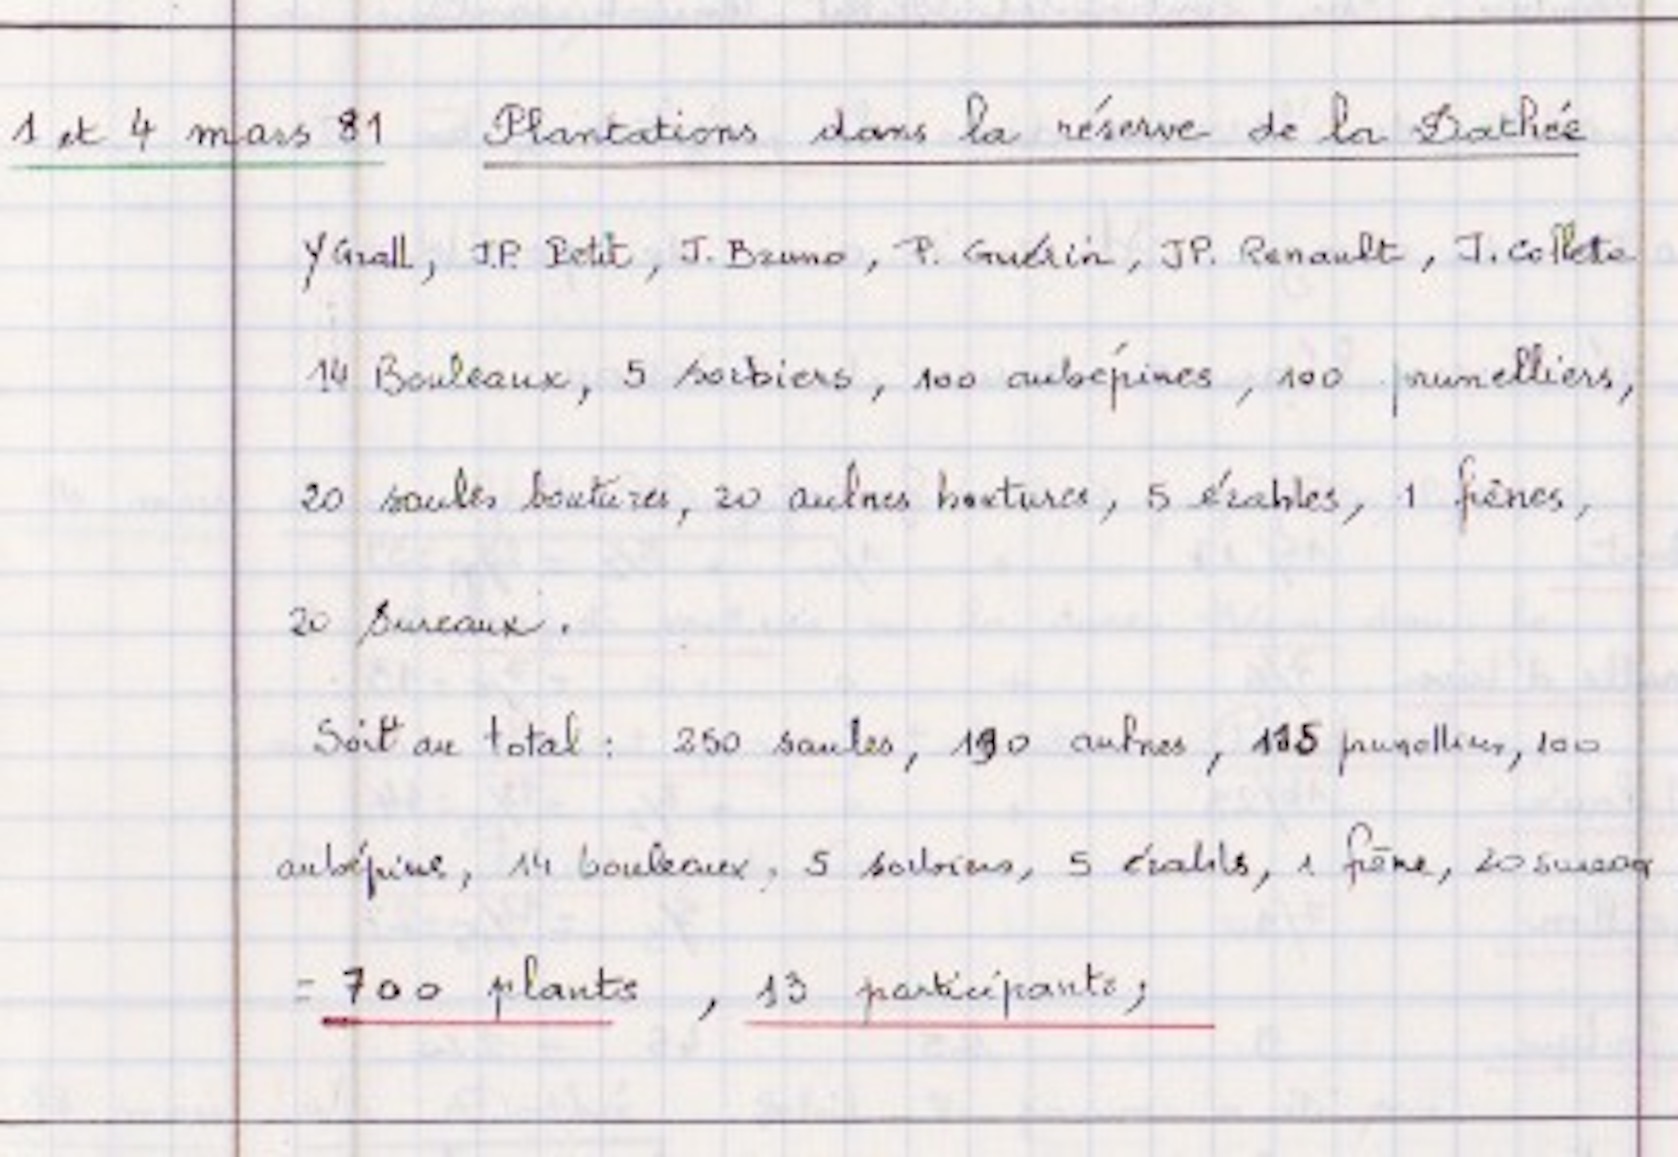 1 et 4 mars 81 Plantations dans la réserve de la Dathée
Y Grall, J.P. Petit, J. Bruno, P. Guérin, JP. Renault, J. Collette
14 Bouleaux, 5 sorbiers, 100 aubépines, 100 prunelliers,
20 saules boutures, 20 aulnes boutures, 5 érables, 1 frênes,
20 Sureaux.
Soit au total : 250 saules, 190 aulnes, 115 prunelliers, 100
aubépine, 14 bouleaux, 5 sorbiers, 5 érables, 1 frêne, 20 sureau
= 700 plants, 13 participants;